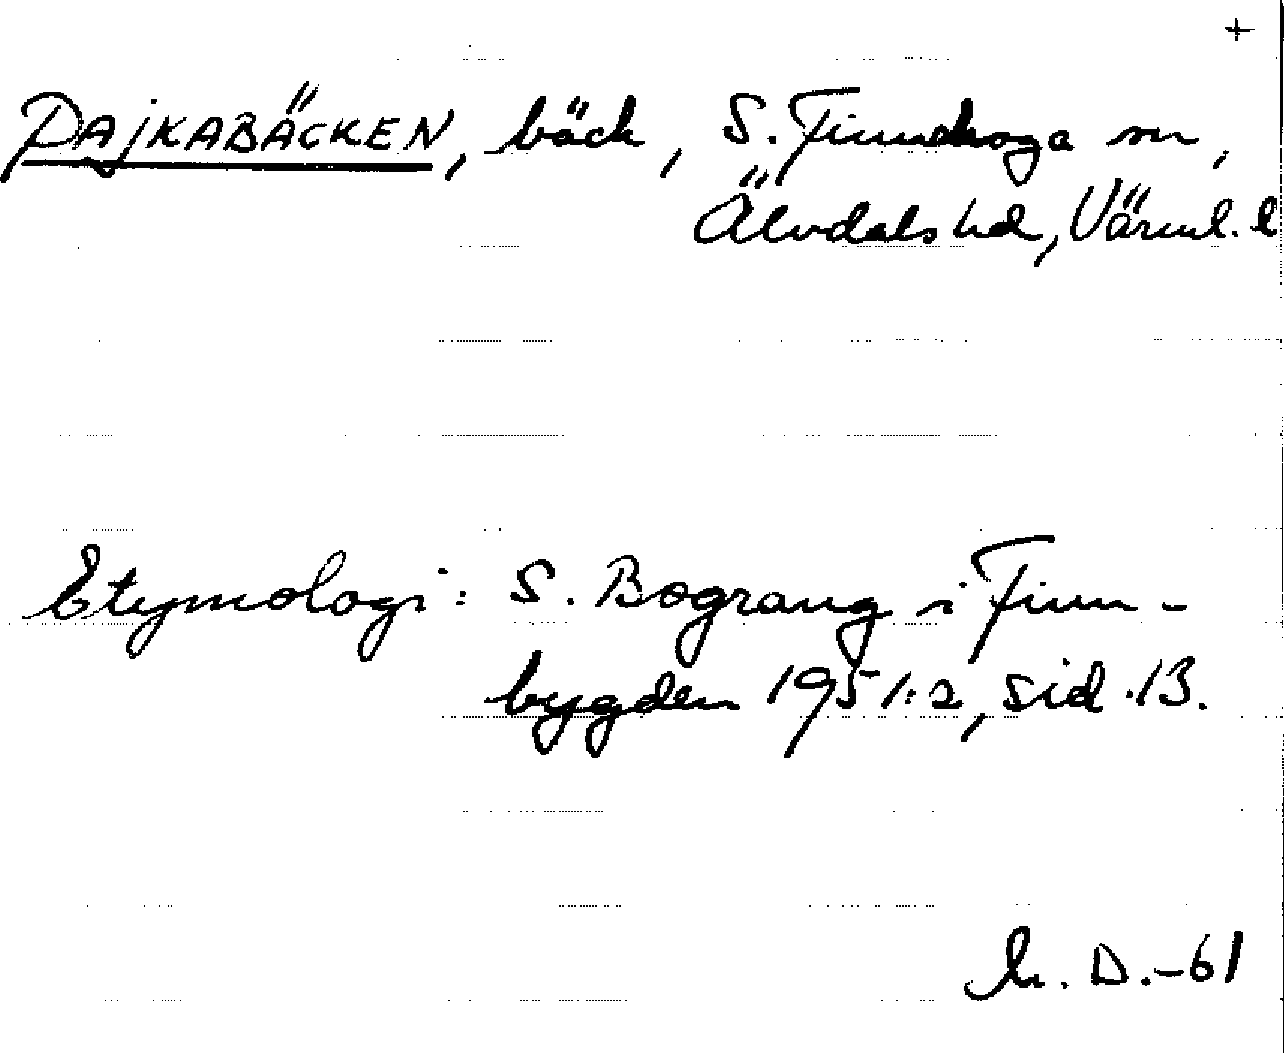 +
PAJKABÄCKEN, bäck, S. Finnskoga sn,
Älvdals hd, Värml. l
Etymologi: S. Bograng i Finn-
bygden 1951:2, sid. 13.
D.-61